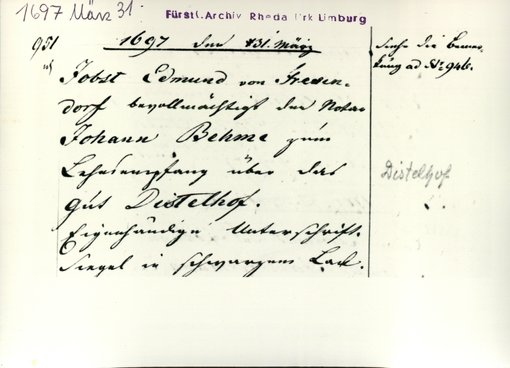 1697 März 31.
Fürstl. Archiv Rheda Urk Limburg
951
1697 den 31. März
Jobst Edmund von Bresen-
dorf bevollmächtigt den Notar
Johann Behme zum
Lehnempfang über das
gut Distelhof.
Eigenhändige Unterschrift.
Siegel in schwarzem Lack.
Siehe die Bemer-
kung ad No 946.
Distelhof